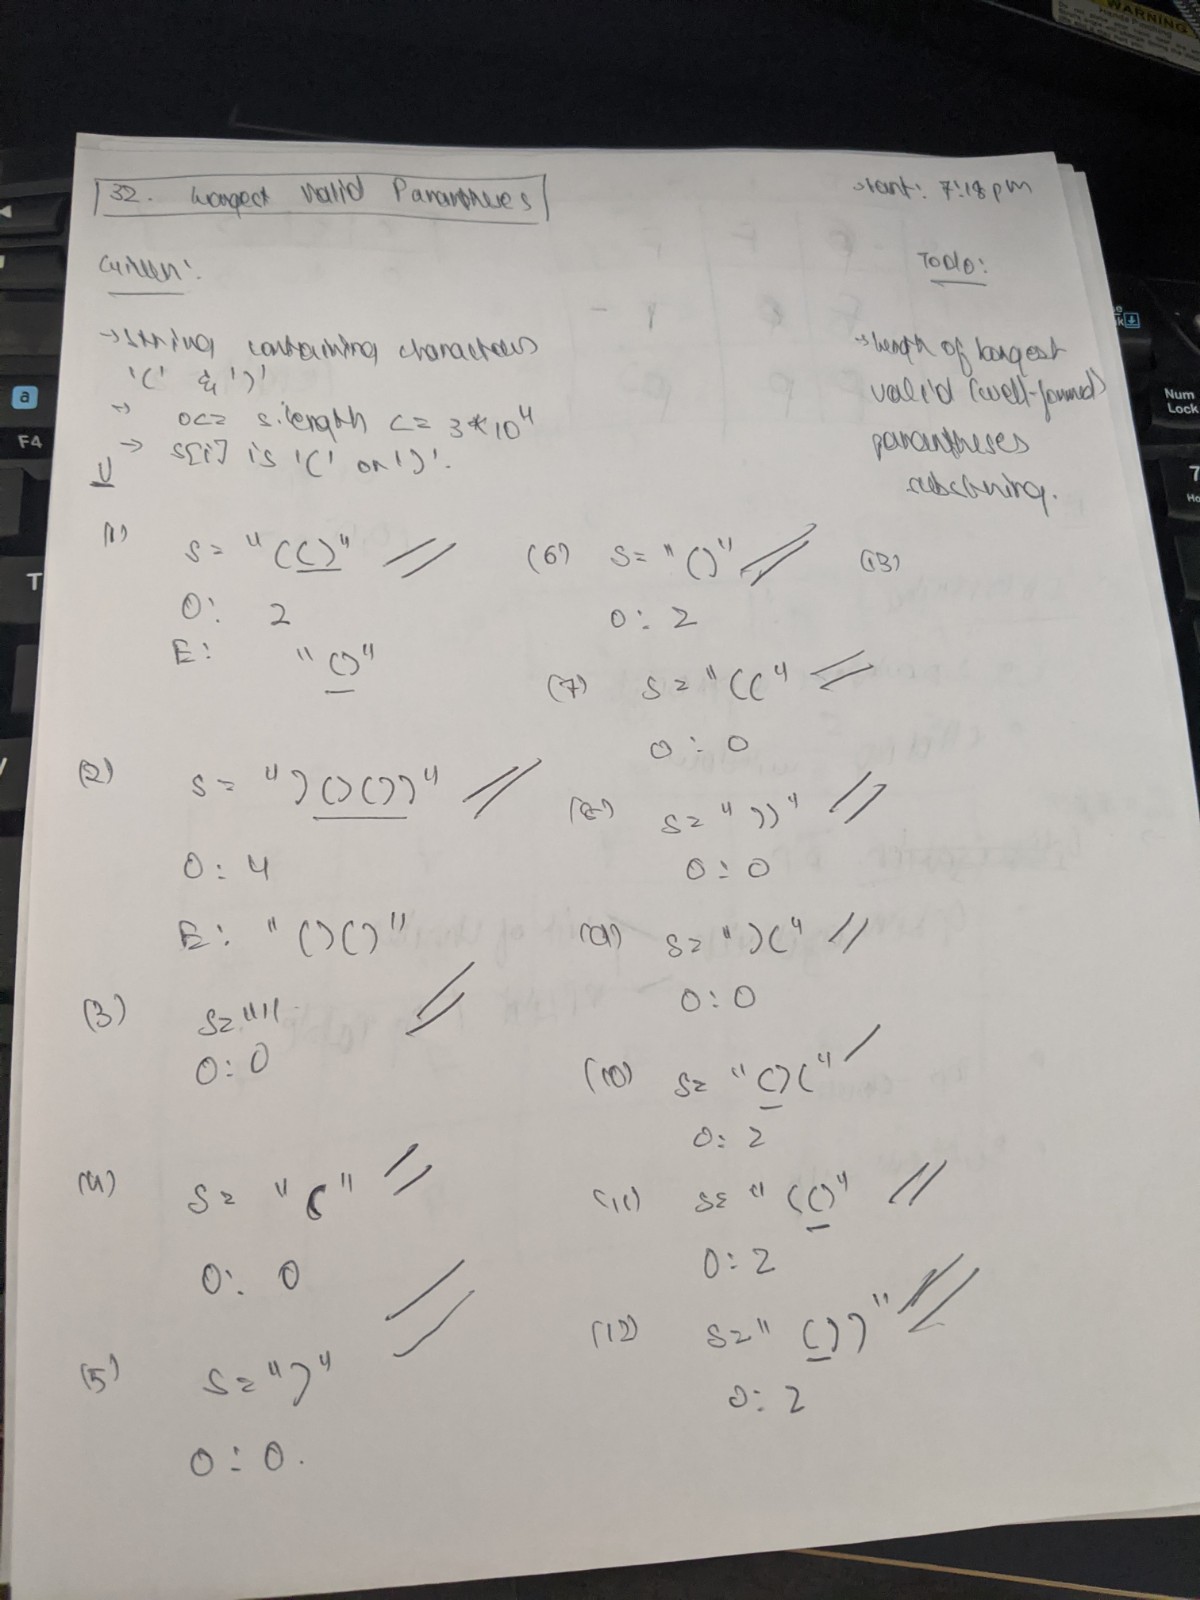 32. Longest Valid Parantheses
start: 7:18 pm
Given:
→ string containing characters
'(' & ')'
→ 0<= s.length <= 3*10^4
→ s[i] is '(' or ')'.
Todo:
→ length of longest
valid (well-formed)
parantheses
substring.
(1) s= "(()"
O: 2
E: "()"
(2) s= ")()())"
O: 4
E: "()()"
(3) s=""
O: 0
(4) s= "("
O: 0
(5) s= ")"
O: 0.
(6) s= "()"
O: 2
(7) s= "(("
O: 0
(8) s= "))"
O: 0
(9) s= ")("
O: 0
(10) s= "()("
O: 2
(11) s= "(()"
O: 2
(12) s= "())"
O: 2
(13)
WARNING
a
F4
T
Num
Lock
7